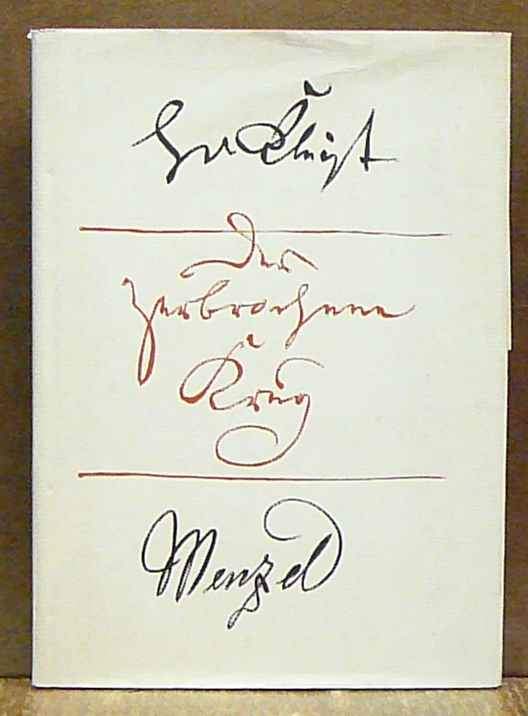 HvKleist
Der
zerbrochene
Krug
Menzel